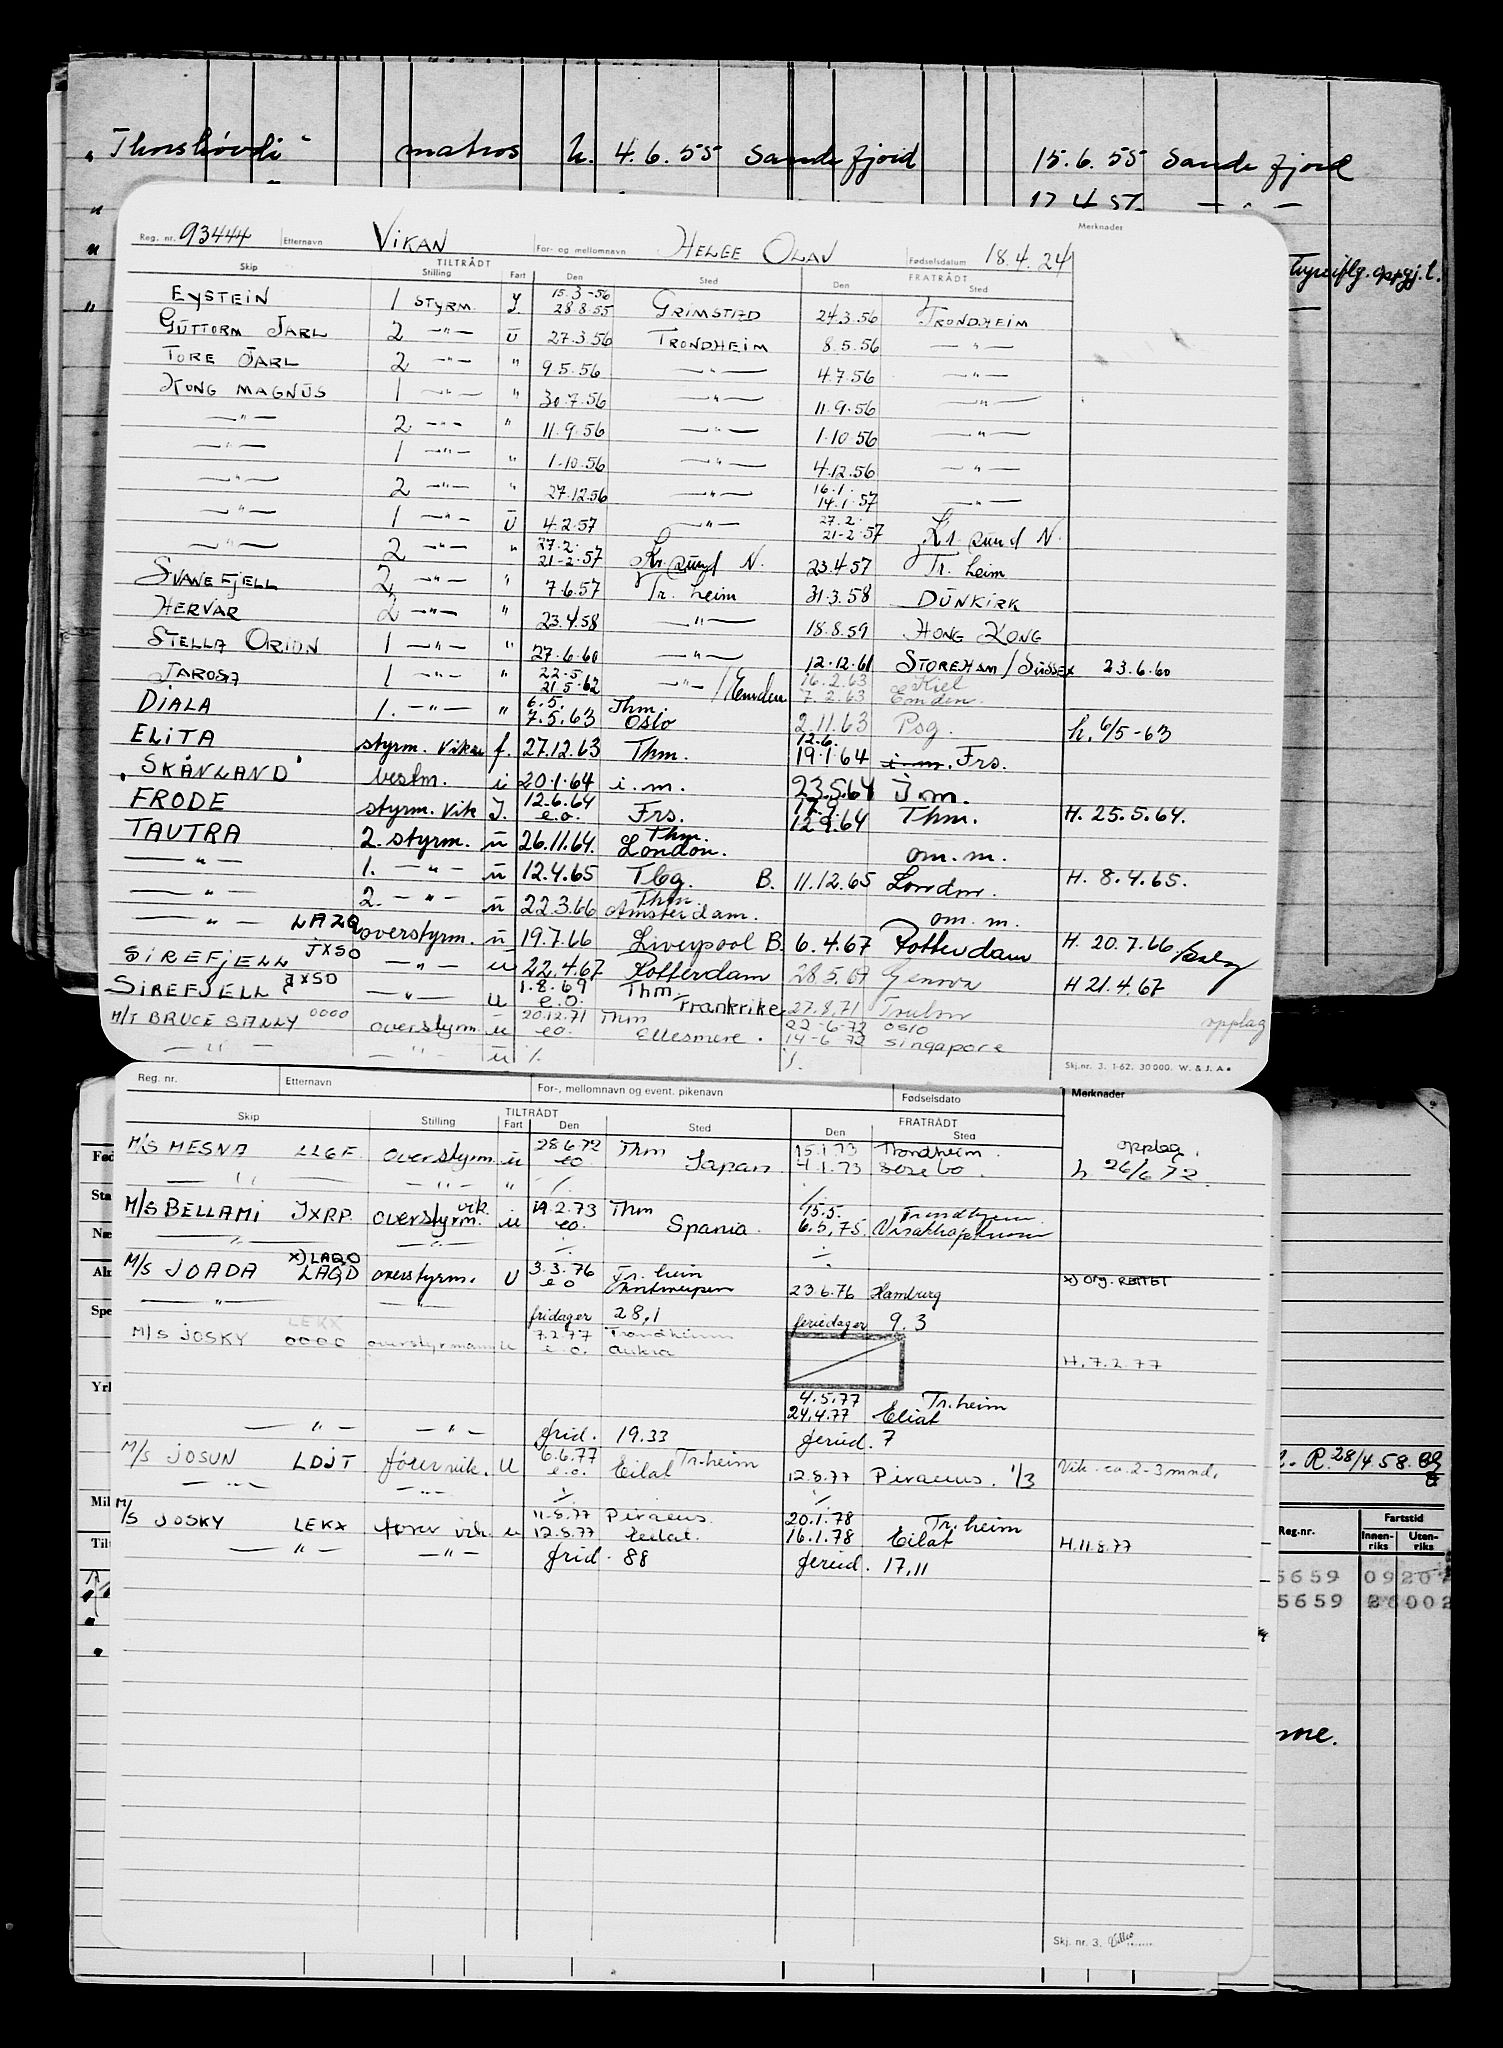 "Thorshövdi" matros u. 4.6.55 Sandefjord 15.6.55 Sandefjord
17.4.57 — " —
Reg. nr. 93444 Etternavn VIKAN For- og mellomnavn HELGE OLAV Fødselsdatum 18.4.24 Merknader
TILTRÅDT FRATRÅDT
Skip Stilling Fart Den Sted Den Sted
EYSTEIN 1 STYRM. J. 15.3-56 28.8.55 GRIMSTAD 24.3.56 TRONDHEIM
GUTTORM JARL 2 — " — U 27.3.56 TRONDHEIM 8.5.56 — " —
TORE JARL 2 — " — " 9.5.56 — " — 4.7.56 — " —
KONG MAGNUS 1 — " — " 30.7.56 — " — 11.9.56 — " —
— " — 2 — " — " 11.9.56 — " — 1.10.56 — " —
— " — 1 — " — " 1.10.56 — " — 4.12.56 — " —
— " — 2 — " — " 27.12.56 — " — 16.1. 14.1.57 — " —
— " — 1 — " — U 4.2.57 — " — 27.2. 21-2.57 Kr. sund N.
— " — 2 — " — " 27.2. 21-2.57 Kr. sund N. 23.4.57 Tr. heim
SVANEFJELL 2 — " — " 7.6.57 Tr. heim 31.3.58 DUNKIRK
HERVAR 2 — " — " 23.4.58 — " — 18.8.59 HONG KONG
STELLA ORION 1 — " — " 27.6.60 — " — 12.12.61 STOREHAM / SUSSEX 23.6.60
JAROSA 1 — " — " 22-5. 21.5.62 — " — / Emden 16.2.63 7.2.63 Kiel Emden.
DIALA 1. — " — " 6.5. 7.5.63 Thm. Oslo 2.11.63 Psg. h. 6/5-63
ELITA styrm. Vikar f. 27.12.63 Thm. 12.6. 19.1.64 i.m. Frs.
"SKÅNLAND" bestm. i 20.1.64 i.m. 23.5.64 i.m.
FRODE styrm. Vik J. 12.6.64 e.o. Frs. 17.9. 12.9.64 Thm. H. 25.5.64.
TAUTRA 2. styrm. u 26.11.64. Thm. London. om. m.
— " — 1. — " — u 12.4.65 Tbg. B. 11.12.65 London. H. 8.4.65.
— " — 2. — " — u 22.3.66 Thm Amsterdam. om. m.
— " — LAZQ overstyrm. u 19.7.66 Liverpool B. 6.4.67 Rotterdam H. 20.7.66
SIREFJELL JXSO — " — u 22.4.67 Rotterdam 28.5.69 Genova H 21.4.67
SIREFJELL JXSO — " — u 1.8.69 e.o. Thm Frankrike 27.8.71 Toulon
M/T BRUCE SALLY 0000 overstyrm. u 20.12.71 eo. Thm Ellesmere. 22-6-72 14-6 72 oslo singapore opplag
— " — — " — u ./. ./.
Skj.nr. 3. 1-62. 30 000. W. & J. A.
Reg. nr. Etternavn For-, mellomnavn og event. pikenavn Fødselsdato Merknader
TILTRÅDT FRATRÅDT
Skip Stilling Fart Den Sted Den Sted
M/S MESNA LLGF overstyrm u 28.6.72 eo. Thm Japan 15.1.73 4.1.73 Trondheim. opplag. h 26/6 72.
— " — — " — " ./. ./.
M/S BELLAMI JXRP. overstyrm. vik. u 19.2.73 eo. Thm Spania. 15.5. 6.5.75 Trondhjem
— " — — " — ./. ./.
M/S JOADA x) LAQO LAQD overstyrm. U 3.3.76 eo Tr. heim Antwerpen 23.6.76 Hamburg x) org. RETTET
— " — — " — fridager 28,1 feriedager 9.3
M/S JOSKY LEKX 0000 overstyrmann u 7.2.77 e.o. Trondheim Aukra H. 7.2.77
4.5.77 Tr.heim
24.4.77 Eliat
— " — — " — frid. 19.33 feried. 7
M/S JOSUN LDJT fører vik. U 6.6.77 e.o. Tr.heim Eilat 12.8.77 Piraeus. 1/3 Vik. ca. 2-3 mnd.
— " — — " — ./. ./.
M/S JOSKY LEKX fører vik. u 11.8.77 12.8.77 Piraeus. Eilat. 20.1.78 16.1.78 Tr. heim Eilat H.11.8.77
— " — — " — frid. 88 feried. 17,11
R 28/4 58.
Reg.nr. Fartstid
Innenriks Utenriks
5659 09207
5659 26002
Skj. nr. 3.